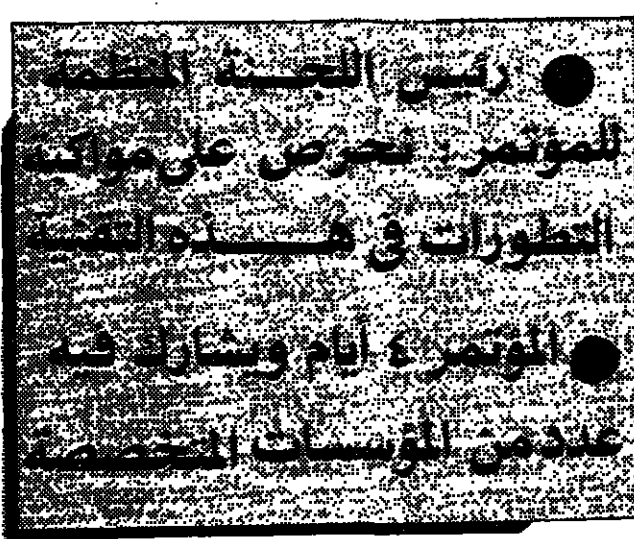 ● رئيس اللجنة المنظمة
للمؤتمر : نحرص على مواكبة
التطورات في هذه التقنية
● المؤتمر ٤ أيام ويشارك فيه
عدد من المؤسسات المتخصصة